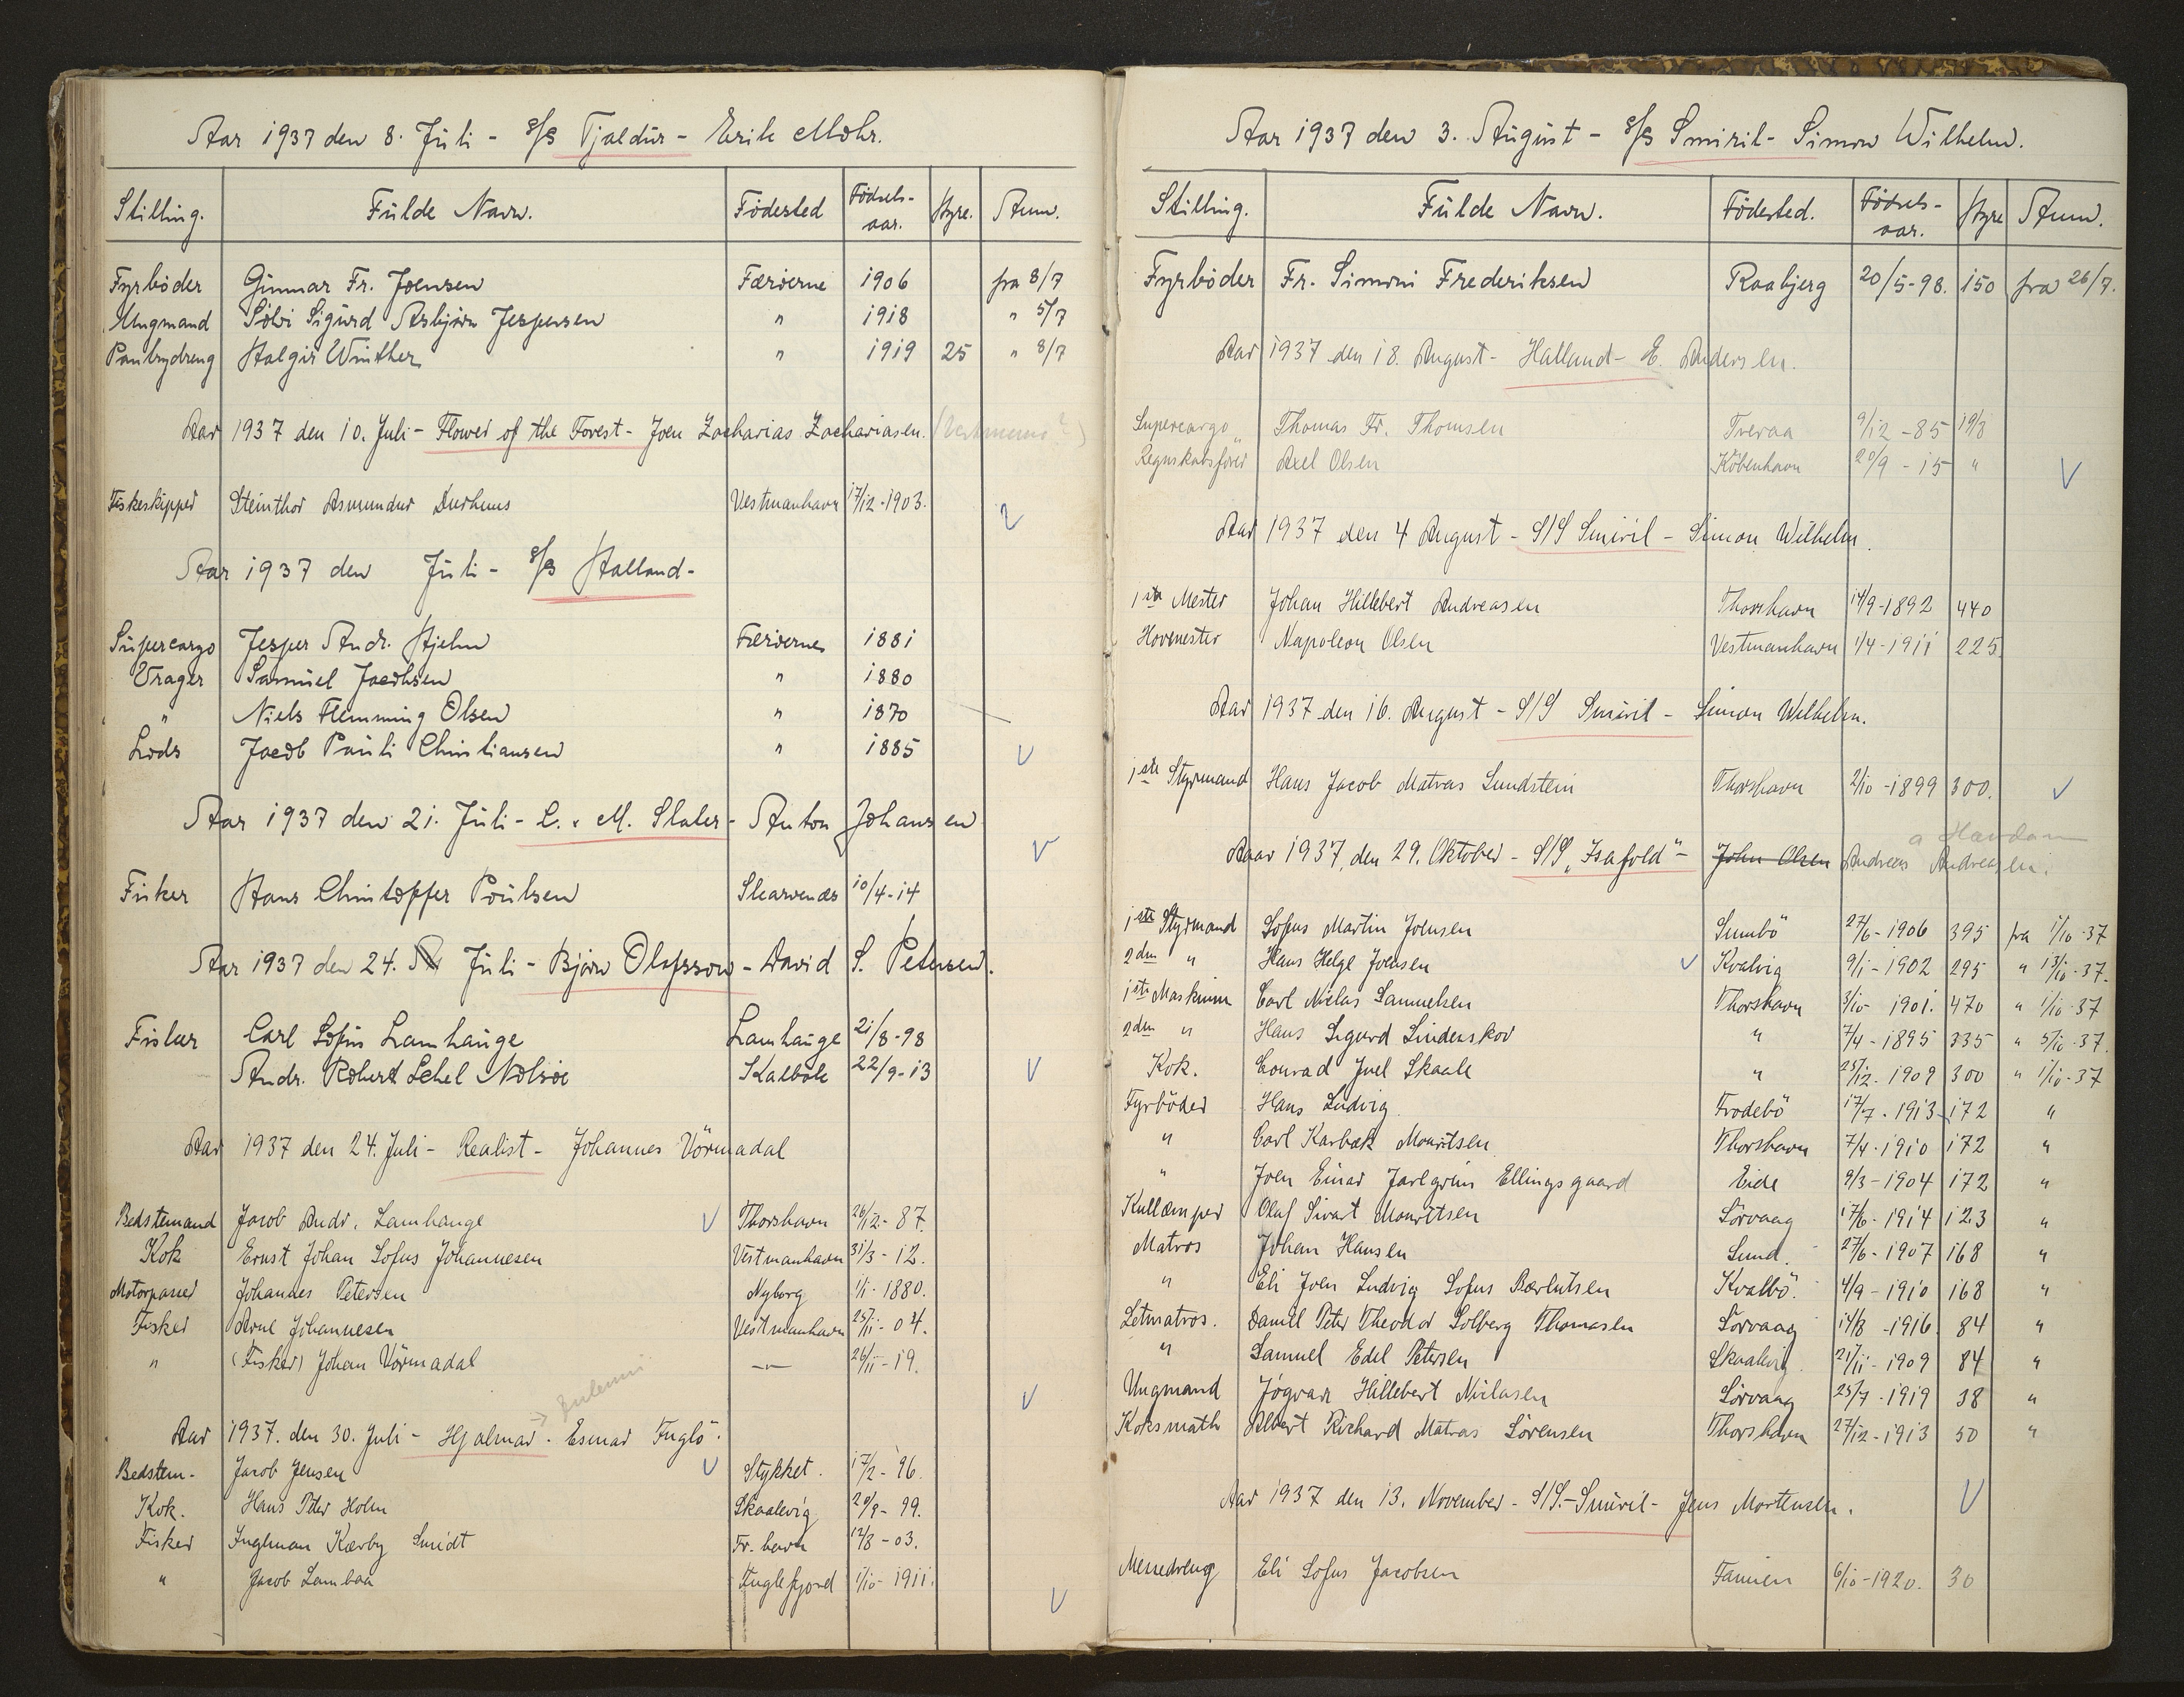 Aar 1937 den 8. Juli - S/S Tjaldur - Erik Mohr.
Stilling. Fulde Navn. Födested Födsels-aar. Hyre. Anm.
Fyrböder Gunnar Fr. Joensen Færöerne 1906 fra 8/7
Ungmand Sölvi Sigurd Asbjörn Jespersen " 1918 " 5/7
Pantrydreng Halgir Winther " 1919 25 " 8/7
Aar 1937 den 10. Juli - Flower of the Forest - Joen Zacharias Zachariasen.
Fiskeskipper Steinthor Asmundur Durhuus Vestmanhavn 17/12-1903.
Aar 1937 den Juli - S/S Halland -
Supercargo Jesper Andr. Hjelm Færöerne 1881
Vrager Samuel Jacobsen " 1880
" Niels Flemming Olsen " 1870
Lods Jacob Pauli Christiansen " 1885
Aar 1937 den 21. Juli - L. & M. Slater - Anton Johansen
Fisker Hans Christopffer Poulsen Skarvenæs 10/4-14
Aar 1937 den 24. Juli - Björn Olafsson - David S. Petersen.
Fisker Carl Sofus Lamhauge Lamhauge 21/8-98
Andr. Robert Schel Nolsöe Kalbak 22/9-13
Aar 1937 den 24. Juli - Realist - Johannes Vörmadal
Bedstemand Jacob Andr. Lamhauge Thorshavn 26/12-87.
Kok Ernst Johan Sofus Johannesen Vestmanhavn 31/3-12.
Motorpasser Johannes Petersen Nyborg 1/1-1880.
Fisker Arne Johannesen Vestmanhavn 25/11-04.
" (Fisker) Johan Vörmadal —"— 26/11-19.
Aar 1937. den 30. Juli - Hjalmar - Esmar Fuglö.
Bedstem- Jacob Jensen Stykket. 17/2-96.
Kok. Hans Peter Holm Skaalevig 20/9-99.
Fisker Inglman Kærby Smidt Fr. havn 12/8-03.
" Jacob Lambaa Fuglefjord 1/10-1911.
Aar 1937 den 3. August - S/S Smiril - Simon Wilhelm.
Stilling. Fulde Navn. Födested. Födsels-aar. Hyre Anm.
Fyrböder Fr. Simoni Frederiksen Raabjerg 20/5-98. 150 fra 26/7.
Aar 1937 den 18. August - Halland - E. Andersen.
Supercargo Thomas Fr. Thomsen Tveraa 9/12-85 19/8
Regnskabsförer Axel Olsen Köbenhavn 20/9-15 "
Aar 1937 den 4 August - S/S Smiril - Simon Wilhelm.
1ste Mester Johan Hillebert Andreasen Thorshavn 14/9-1892 440
Hovmester Napoleon Olsen Vestmanhavn 1/4-1911 225.
Aar 1937 den 16. August - S/S Smiril - Simon Wilhelm.
1ste Styrmand Hans Jacob Matras Lundstein Thorshavn 2/10-1899 300.
Aaar 1937, den 29. Oktober - S/S „Isafold" - John Olsen Andreas Andreasen.
1ste Styrmand Sofus Martin Joensen Sumbö 27/6-1906 395 fra 1/10-37
2den " Hans Helge Joensen Kvalvig 9/1-1902 295 " 13/10-37.
1ste Maskinm Carl Niclas Samuelsen Thorshavn 3/10-1901. 470 " 1/10-37
2den " Hans Sigurd Lindenskov " 7/4-1895 335 " 5/10-37.
Kok. Conrad Juel Skaale " 25/12-1909 300 " 1/10-37
Fyrböder Hans Ludvig Frodebö 17/7-1913 172 "
" Carl Karbæk Mouritsen Thorshavn 7/4-1910 172 "
" Joen Einar Jarlgrim Ellingsgaard Eide 9/3-1904 172 "
Kullæmper Oluf Sivart Mouritsen Sörvaag 17/6-1914 123 "
Matros Johan Hansen Sund. 27/6-1907 168 "
" Eli Joen Ludvig Sofus Bærlutsen Kvalbö. 4/9-1910 168 "
Letmatros. Daniel Peter Theodor Solberg Thomasen Sörvaag 14/8-1916 84 "
" Samuel Edel Petersen Skaalvig 21/11-1909 84 "
Ungmand Jógvan Hillebert Niclasen Sörvaag 25/7-1919 38 "
Koksmath Albert Richard Matras Sörensen Thorshavn 27/12-1913 50 "
Aar 1937 den 13. November - S/S.-Smiril - Jens Mortensen.
Messedreng Eli Sofus Jacobsen Famien 6/10-1920. 30